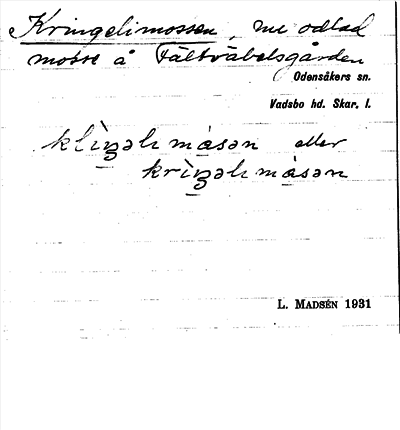 Kringelimossen, nu odlad
mosse å Fältväbelsgården
Odensåkers sn.
Vadsbo hd. Skar. l.
klìŋəlı mɑ̀sən eller
krìŋəlı mɑ̀sən
L. MADSÉN 1931